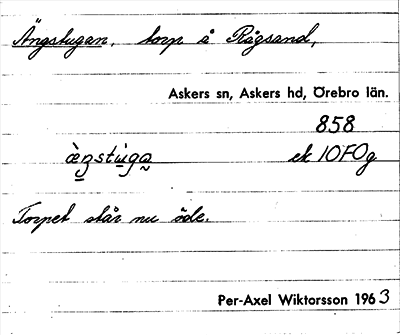 Ängstugan, torp å Rågsand,
Askers sn, Askers hd, Örebro län.
858
ὰŋstùga ek 10F0g
Torpet står nu öde.
Per-Axel Wiktorsson 1963